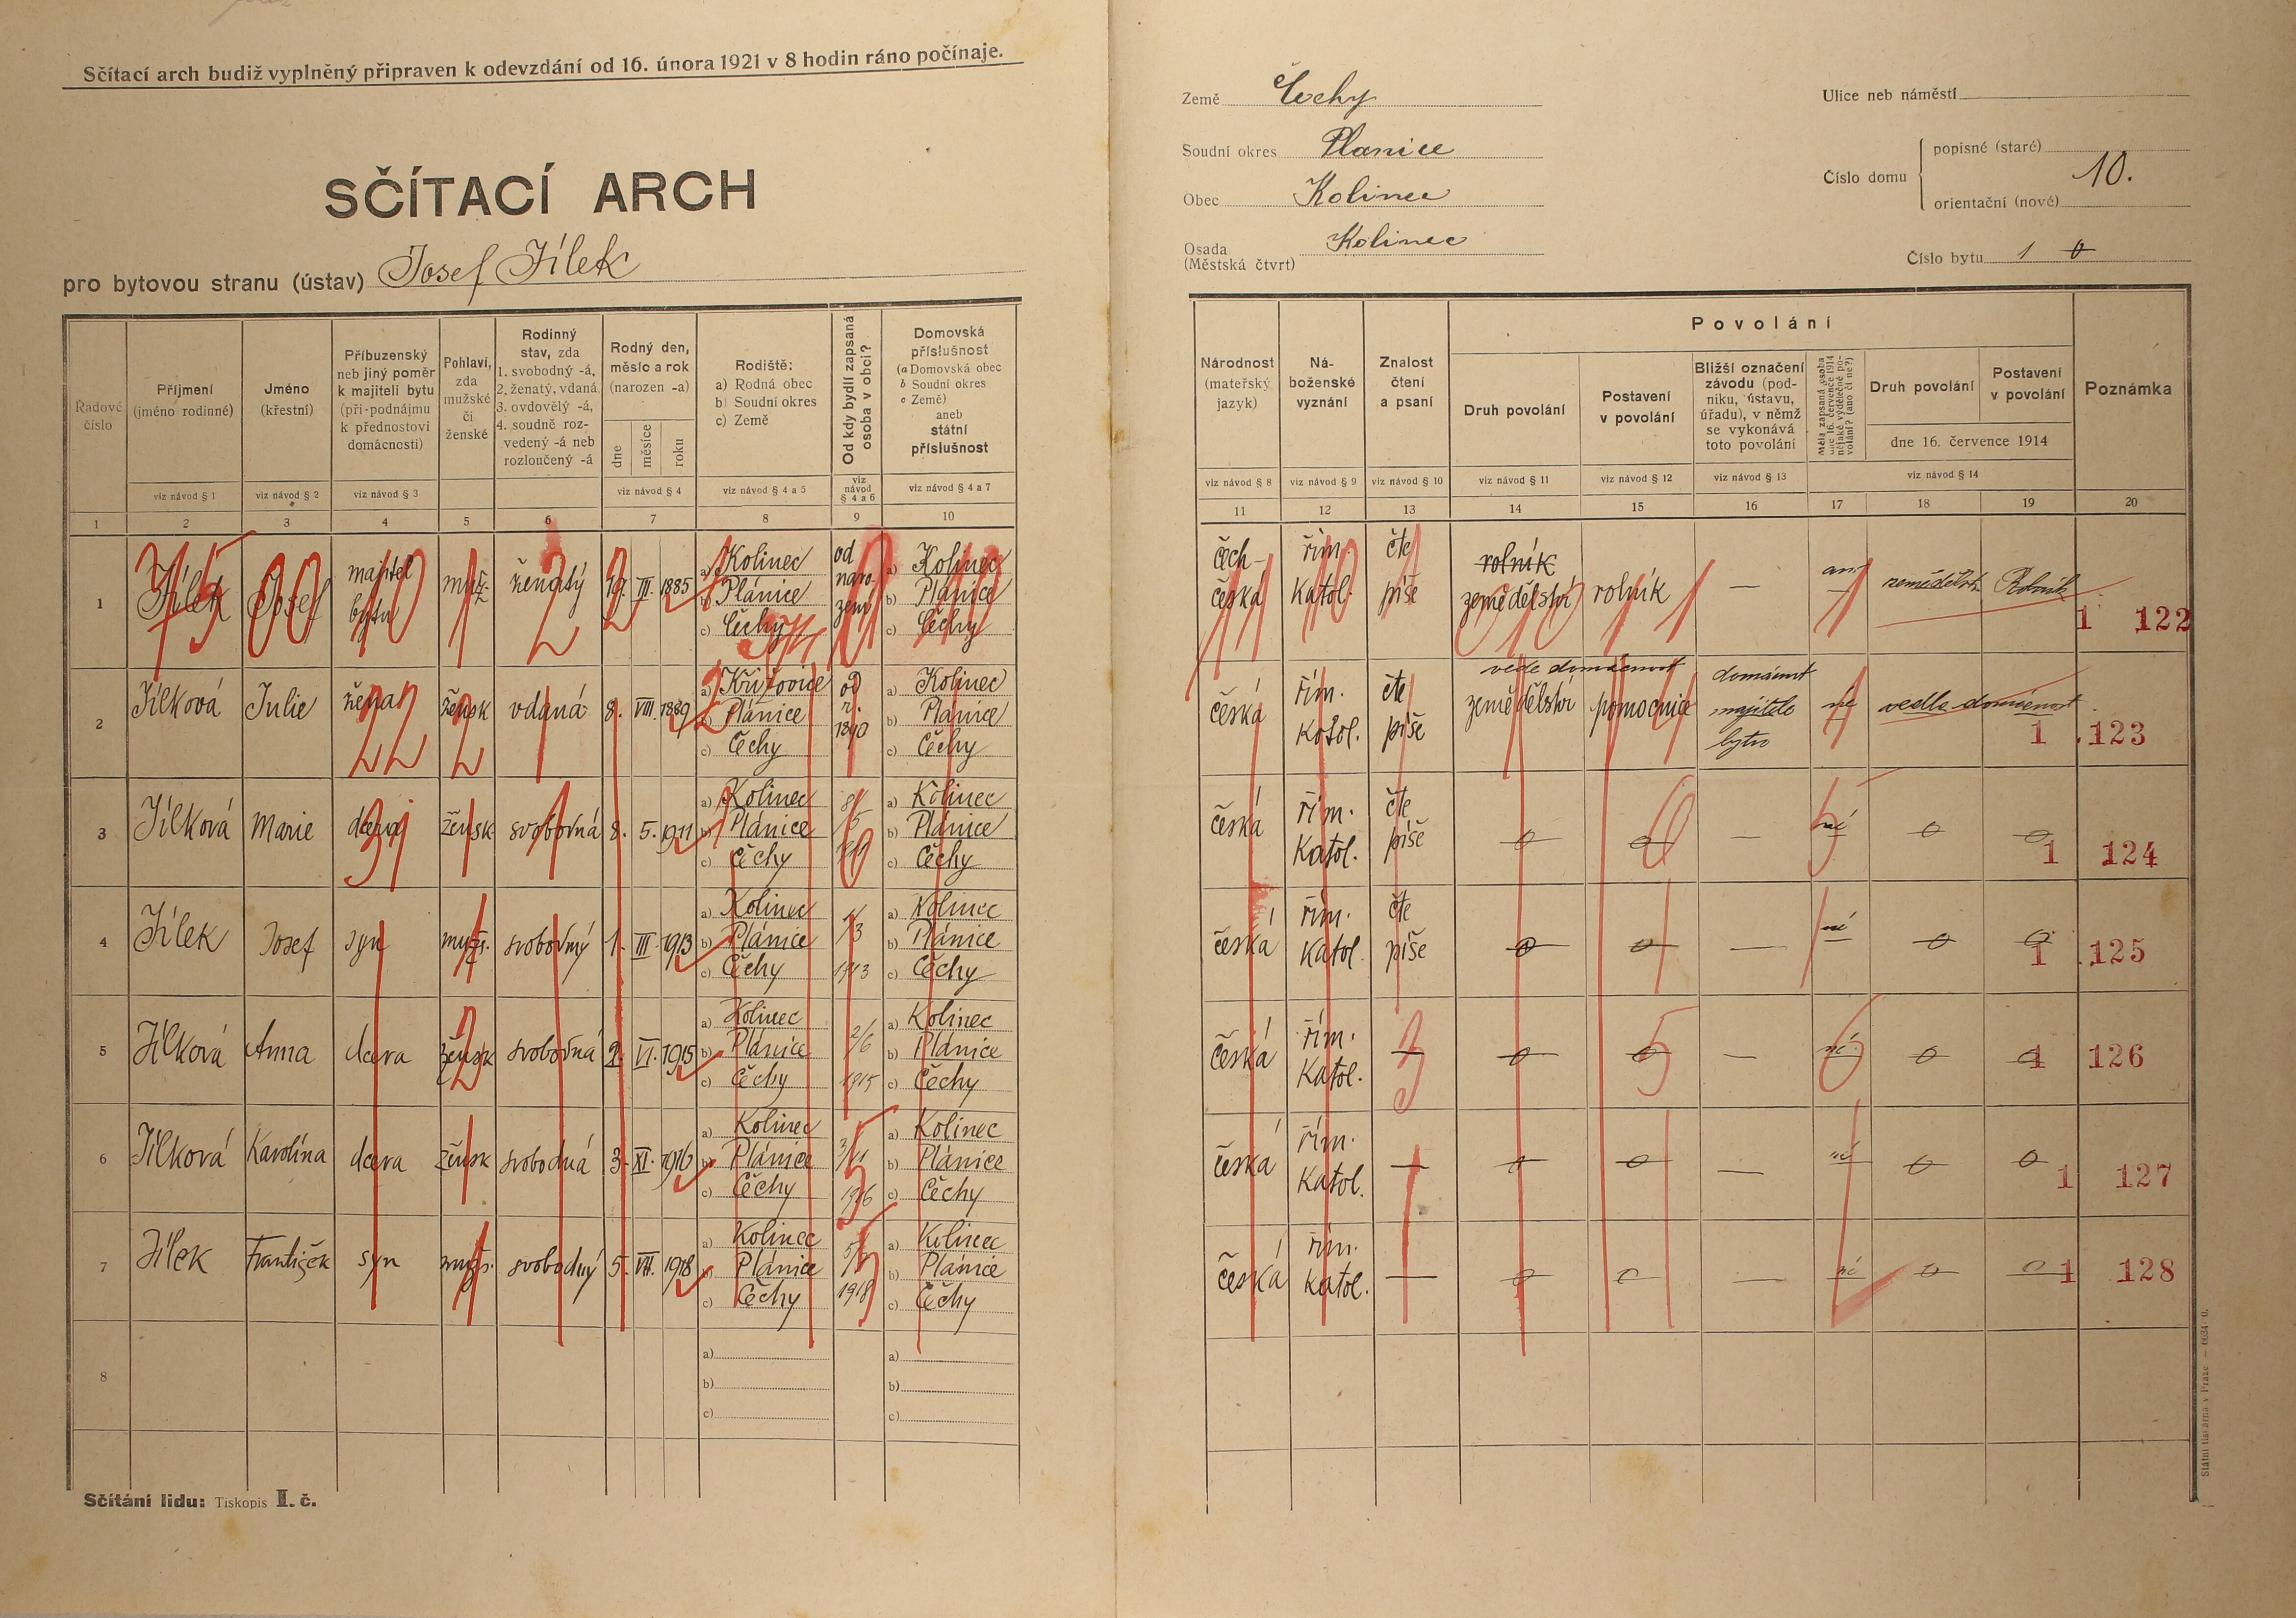 Sčítací arch budiž vyplněný připraven k odevzdání od 16. února 1921 v 8 hodin ráno počínaje.
SČÍTACÍ ARCH
pro bytovou stranu (ústav) Josef Jílek
Země Čechy
Soudní okres Planice
Obec Kolinec
Osada (Městská čtvrt) Kolinec
Ulice neb náměstí
Číslo domu
popisné (staré)
10.
orientační (nové)
Číslo bytu 1
Řadové číslo
Příjmení (jméno rodinné)
Jméno (křestní)
Příbuzenský neb jiný poměr k majiteli bytu (při podnájmu k přednostovi domácnosti)
Pohlaví, zda mužské či ženské
Rodinný stav, zda 1. svobodný -á, 2. ženatý, vdaná, 3. ovdovělý -á, 4. soudně rozvedený -á neb rozloučený -á
Rodný den, měsíc a rok (narozen -a)
dne měsíce roku
Rodiště: a) Rodná obec b) Soudní okres c) Země
Od kdy bydlí zapsaná osoba v obci?
Domovská příslušnost (a Domovská obec b Soudní okres c Země) aneb státní příslušnost
viz návod § 1 viz návod § 2 viz návod § 3 viz návod § 4 viz návod § 4 a 5 viz návod § 4 a 6 viz návod § 4 a 7
1 2 3 4 5 6 7 8 9 10
Národnost (mateřský jazyk)
Náboženské vyznání
Znalost čtení a psaní
Povolání
Druh povolání
Postavení v povolání
Bližší označení závodu (podniku, ústavu, úřadu), v němž se vykonává toto povolání
Měla zapsaná osoba dne 16. července 1914 nějaké výdělečné povolání? (ano či ne?)
Druh povolání
Postavení v povolání
dne 16. července 1914
Poznámka
viz návod § 8 viz návod § 9 viz návod § 10 viz návod § 11 viz návod § 12 viz návod § 13 viz návod § 14
11 12 13 14 15 16 17 18 19 20
1 Jílek Josef majitel bytu muž. ženatý 19. III. 1885 a) Kolinec b) Plánice c) Čechy od narození a) Kolinec b) Plánice c) Čechy
čech- česká řím. katol. čte píše rolník zemědělství rolník — ano zemědělstv. Rolník 1 122
2 Jílková Julie žena žensk vdaná 8. VIII. 1889 a) Křížovice b) Plánice c) Čechy od r. a) Kolinec b) Plánice c) Čechy
česká řím. katol. čte píše vede domácnost zemědělství pomocnice domácnost majitele bytu ne vedla domácnost 1 123
3 Jílková Marie dcera žensk svobodná 8. 5. 1911 a) Kolinec b) Plánice c) Čechy 8/5 a) Kolinec b) Plánice c) Čechy
česká řím. katol. čte píše 0 0 — né 0 0 1 124
4 Jílek Josef syn mužs. svobodný 1. III. 1913 a) Kolinec b) Plánice c) Čechy 1/3 1913 a) Kolinec b) Plánice c) Čechy
česká řím. katol. čte píše 0 0 — né 0 0 1 125
5 Jílková Anna dcera žensk svobodná 2. VI. 1915 a) Kolinec b) Plánice c) Čechy 2/6 1915 a) Kolinec b) Plánice c) Čechy
česká řím. katol. — 0 0 — né 0 0 1 126
6 Jílková Karolína dcera žensk svobodná 3. XI. 1916 a) Kolinec b) Plánice c) Čechy 3/11 1916 a) Kolinec b) Plánice c) Čechy
česká řím. katol. — 0 0 — né 0 0 1 127
7 Jílek František syn mužs. svobodný 5. VII. 1918 a) Kolinec b) Plánice c) Čechy 1918 a) Kolinec b) Plánice c) Čechy
česká řím. katol. — 0 0 — né 0 0 1 128
8 a) b) c) a) b) c)
Sčítání lidu: Tiskopis I. č.
Státní tiskárna v Praze